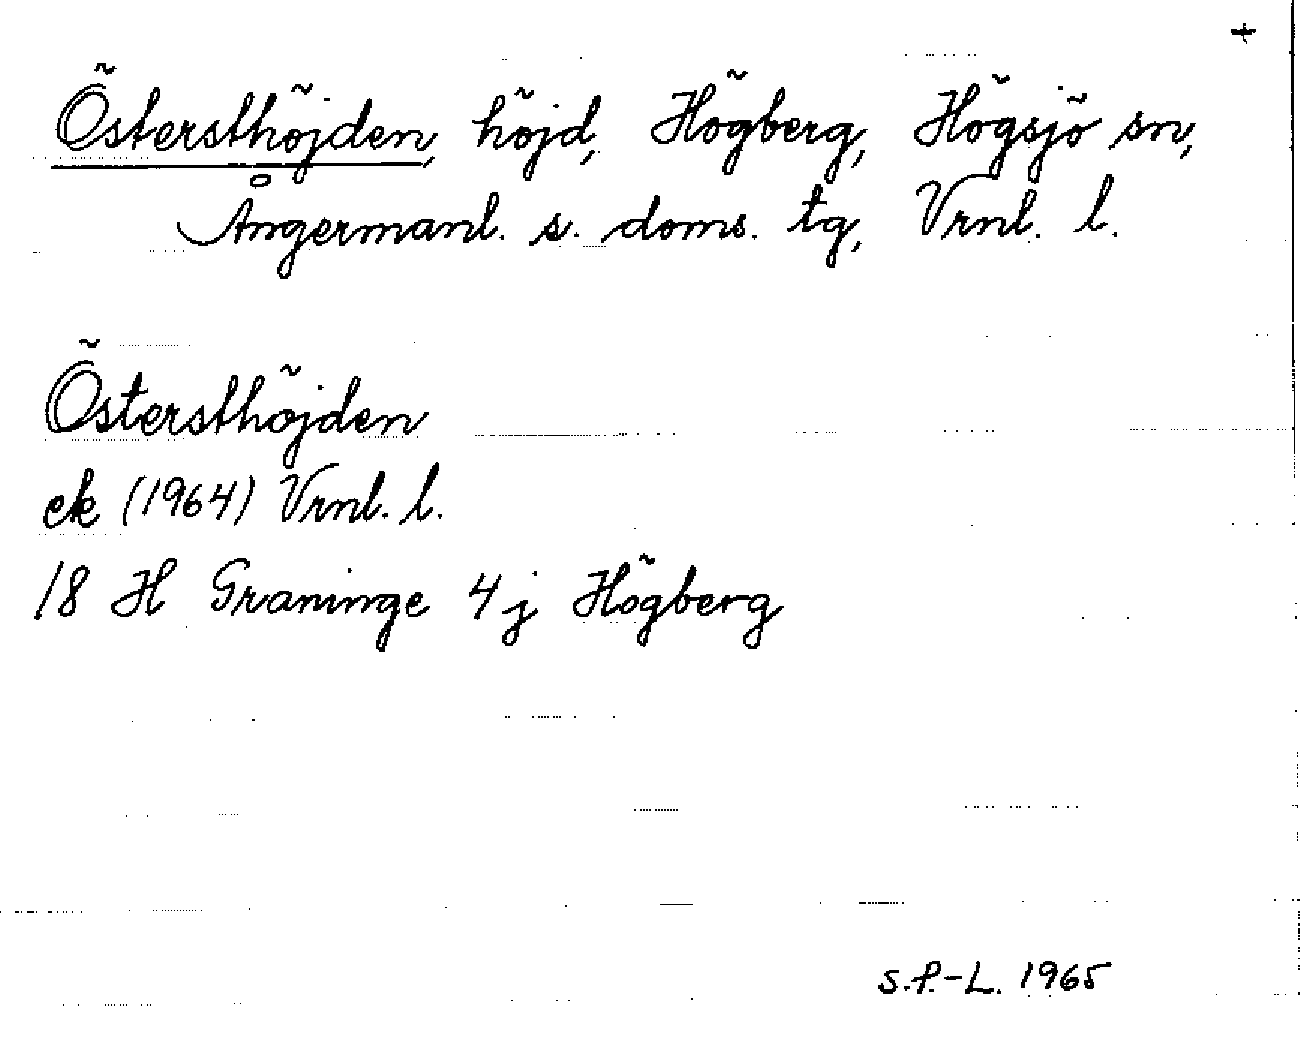 +
Östersthöjden, höjd, Högberg, Högsjö sn,
Ångermanl. s. doms. tg, Vrnl. l.
Östersthöjden
ek (1964) Vrnl. l.
18 H Graninge 4 j Högberg
S.P.-L. 1965